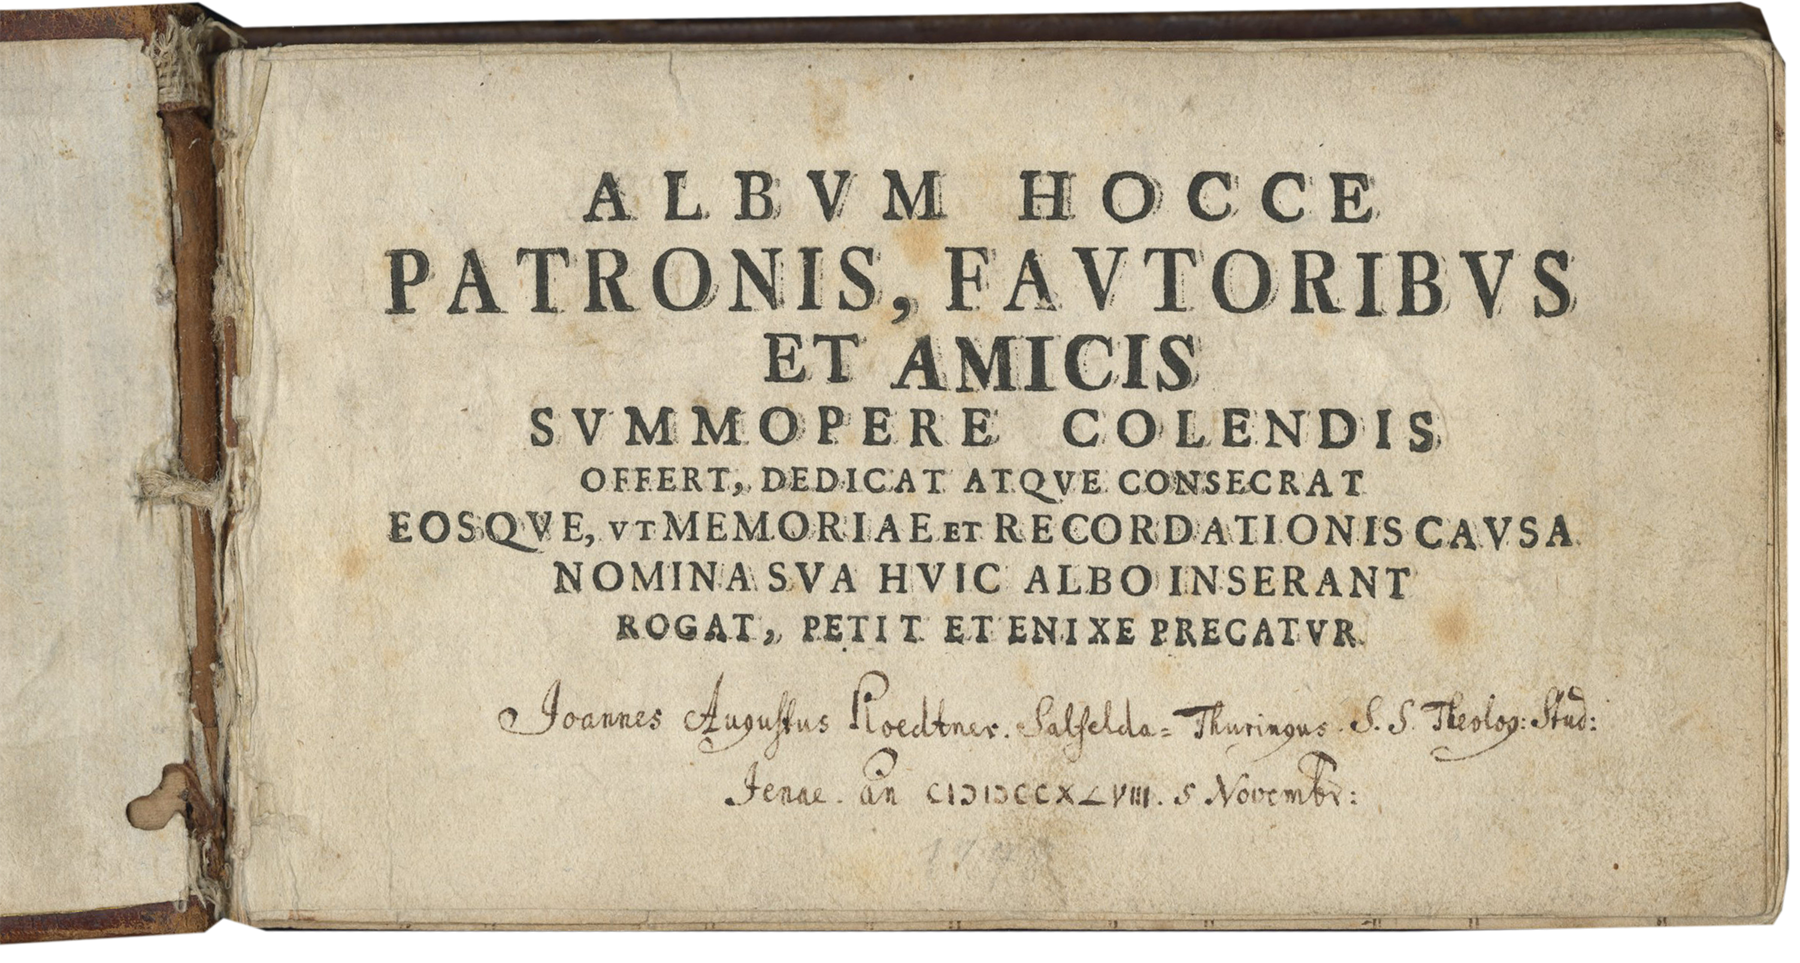 ALBVM HOCCE
PATRONIS, FAVTORIBVS
ET AMICIS
SVMMOPERE COLENDIS
OFFERT, DEDICAT ATQVE CONSECRAT
EOSQVE, VT MEMORIAE ET RECORDATIONIS CAVSA
NOMINA SVA HVIC ALBO INSERANT
ROGAT, PETIT ET ENIXE PRECATVR
Joannes Augustus Roedtner. Salfelda= Thuringus. S. S. Theolog: Stud:
Jenae. an CIƆIƆCCXLVIII. 5 Novembr: